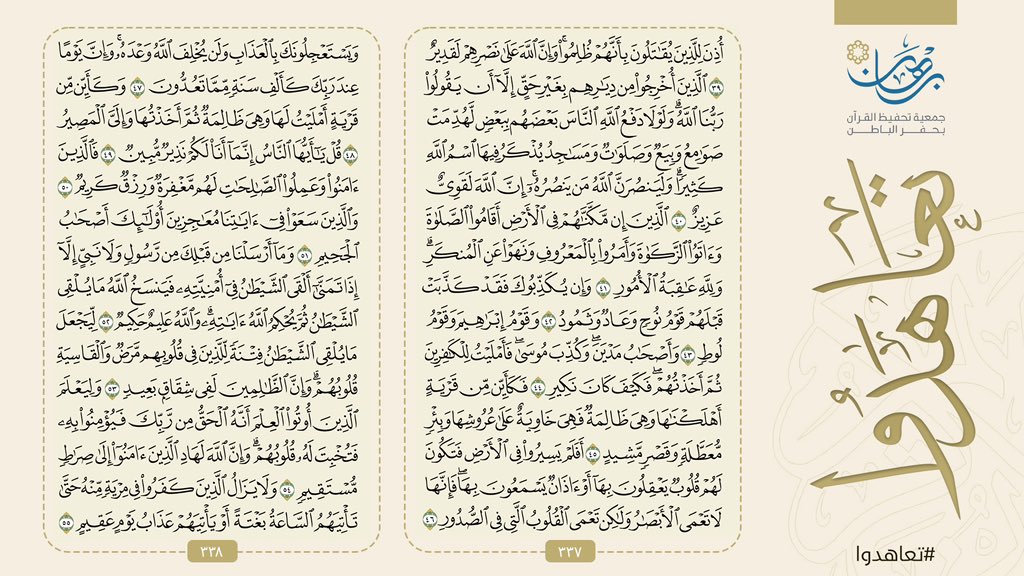 جمعية تحفيظ القرآن
بحفر الباطن
تعاهدوا
#تعاهدوا
أُذِنَ لِلَّذِينَ يُقَٰتَلُونَ بِأَنَّهُمْ ظُلِمُوا۟ ۚ وَإِنَّ ٱللَّهَ عَلَىٰ نَصْرِهِمْ لَقَدِيرٌ
٣٩ ٱلَّذِينَ أُخْرِجُوا۟ مِن دِيَٰرِهِم بِغَيْرِ حَقٍّ إِلَّآ أَن يَقُولُوا۟
رَبُّنَا ٱللَّهُ ۗ وَلَوْلَا دَفْعُ ٱللَّهِ ٱلنَّاسَ بَعْضَهُم بِبَعْضٍ لَّهُدِّمَتْ
صَوَٰمِعُ وَبِيَعٌ وَصَلَوَٰتٌ وَمَسَٰجِدُ يُذْكَرُ فِيهَا ٱسْمُ ٱللَّهِ
كَثِيرًا ۗ وَلَيَنصُرَنَّ ٱللَّهُ مَن يَنصُرُهُۥٓ ۗ إِنَّ ٱللَّهَ لَقَوِىٌّ
عَزِيزٌ ٤٠ ٱلَّذِينَ إِن مَّكَّنَّٰهُمْ فِى ٱلْأَرْضِ أَقَامُوا۟ ٱلصَّلَوٰةَ
وَءَاتَوُا۟ ٱلزَّكَوٰةَ وَأَمَرُوا۟ بِٱلْمَعْرُوفِ وَنَهَوْا۟ عَنِ ٱلْمُنكَرِ ۗ
وَلِلَّهِ عَٰقِبَةُ ٱلْأُمُورِ ٤١ وَإِن يُكَذِّبُوكَ فَقَدْ كَذَّبَتْ
قَبْلَهُمْ قَوْمُ نُوحٍ وَعَادٌ وَثَمُودُ ٤٢ وَقَوْمُ إِبْرَٰهِيمَ وَقَوْمُ
لُوطٍ ٤٣ وَأَصْحَٰبُ مَدْيَنَ ۖ وَكُذِّبَ مُوسَىٰ فَأَمْلَيْتُ لِلْكَٰفِرِينَ
ثُمَّ أَخَذْتُهُمْ ۖ فَكَيْفَ كَانَ نَكِيرِ ٤٤ فَكَأَيِّن مِّن قَرْيَةٍ
أَهْلَكْنَٰهَا وَهِىَ ظَالِمَةٌ فَهِىَ خَاوِيَةٌ عَلَىٰ عُرُوشِهَا وَبِئْرٍ
مُّعَطَّلَةٍ وَقَصْرٍ مَّشِيدٍ ٤٥ أَفَلَمْ يَسِيرُوا۟ فِى ٱلْأَرْضِ فَتَكُونَ
لَهُمْ قُلُوبٌ يَعْقِلُونَ بِهَآ أَوْ ءَاذَانٌ يَسْمَعُونَ بِهَا ۖ فَإِنَّهَا
لَا تَعْمَى ٱلْأَبْصَٰرُ وَلَٰكِن تَعْمَى ٱلْقُلُوبُ ٱلَّتِى فِى ٱلصُّدُورِ ٤٦
٣٣٧
وَيَسْتَعْجِلُونَكَ بِٱلْعَذَابِ وَلَن يُخْلِفَ ٱللَّهُ وَعْدَهُۥ ۚ وَإِنَّ يَوْمًا
عِندَ رَبِّكَ كَأَلْفِ سَنَةٍ مِّمَّا تَعُدُّونَ ٤٧ وَكَأَيِّن مِّن
قَرْيَةٍ أَمْلَيْتُ لَهَا وَهِىَ ظَالِمَةٌ ثُمَّ أَخَذْتُهَا وَإِلَىَّ ٱلْمَصِيرُ
٤٨ قُلْ يَٰٓأَيُّهَا ٱلنَّاسُ إِنَّمَآ أَنَا۠ لَكُمْ نَذِيرٌ مُّبِينٌ ٤٩ فَٱلَّذِينَ
ءَامَنُوا۟ وَعَمِلُوا۟ ٱلصَّٰلِحَٰتِ لَهُم مَّغْفِرَةٌ وَرِزْقٌ كَرِيمٌ ٥٠
وَٱلَّذِينَ سَعَوْا۟ فِىٓ ءَايَٰتِنَا مُعَٰجِزِينَ أُو۟لَٰٓئِكَ أَصْحَٰبُ
ٱلْجَحِيمِ ٥١ وَمَآ أَرْسَلْنَا مِن قَبْلِكَ مِن رَّسُولٍ وَلَا نَبِىٍّ إِلَّآ
إِذَا تَمَنَّىٰٓ أَلْقَى ٱلشَّيْطَٰنُ فِىٓ أُمْنِيَّتِهِۦ فَيَنسَخُ ٱللَّهُ مَا يُلْقِى
ٱلشَّيْطَٰنُ ثُمَّ يُحْكِمُ ٱللَّهُ ءَايَٰتِهِۦ ۗ وَٱللَّهُ عَلِيمٌ حَكِيمٌ ٥٢ لِّيَجْعَلَ
مَا يُلْقِى ٱلشَّيْطَٰنُ فِتْنَةً لِّلَّذِينَ فِى قُلُوبِهِم مَّرَضٌ وَٱلْقَاسِيَةِ
قُلُوبُهُمْ ۗ وَإِنَّ ٱلظَّٰلِمِينَ لَفِى شِقَاقٍۭ بَعِيدٍ ٥٣ وَلِيَعْلَمَ
ٱلَّذِينَ أُوتُوا۟ ٱلْعِلْمَ أَنَّهُ ٱلْحَقُّ مِن رَّبِّكَ فَيُؤْمِنُوا۟ بِهِۦ
فَتُخْبِتَ لَهُۥ قُلُوبُهُمْ ۗ وَإِنَّ ٱللَّهَ لَهَادِ ٱلَّذِينَ ءَامَنُوٓا۟ إِلَىٰ صِرَٰطٍ
مُّسْتَقِيمٍ ٥٤ وَلَا يَزَالُ ٱلَّذِينَ كَفَرُوا۟ فِى مِرْيَةٍ مِّنْهُ حَتَّىٰ
تَأْتِيَهُمُ ٱلسَّاعَةُ بَغْتَةً أَوْ يَأْتِيَهُمْ عَذَابُ يَوْمٍ عَقِيمٍ ٥٥
٣٣٨